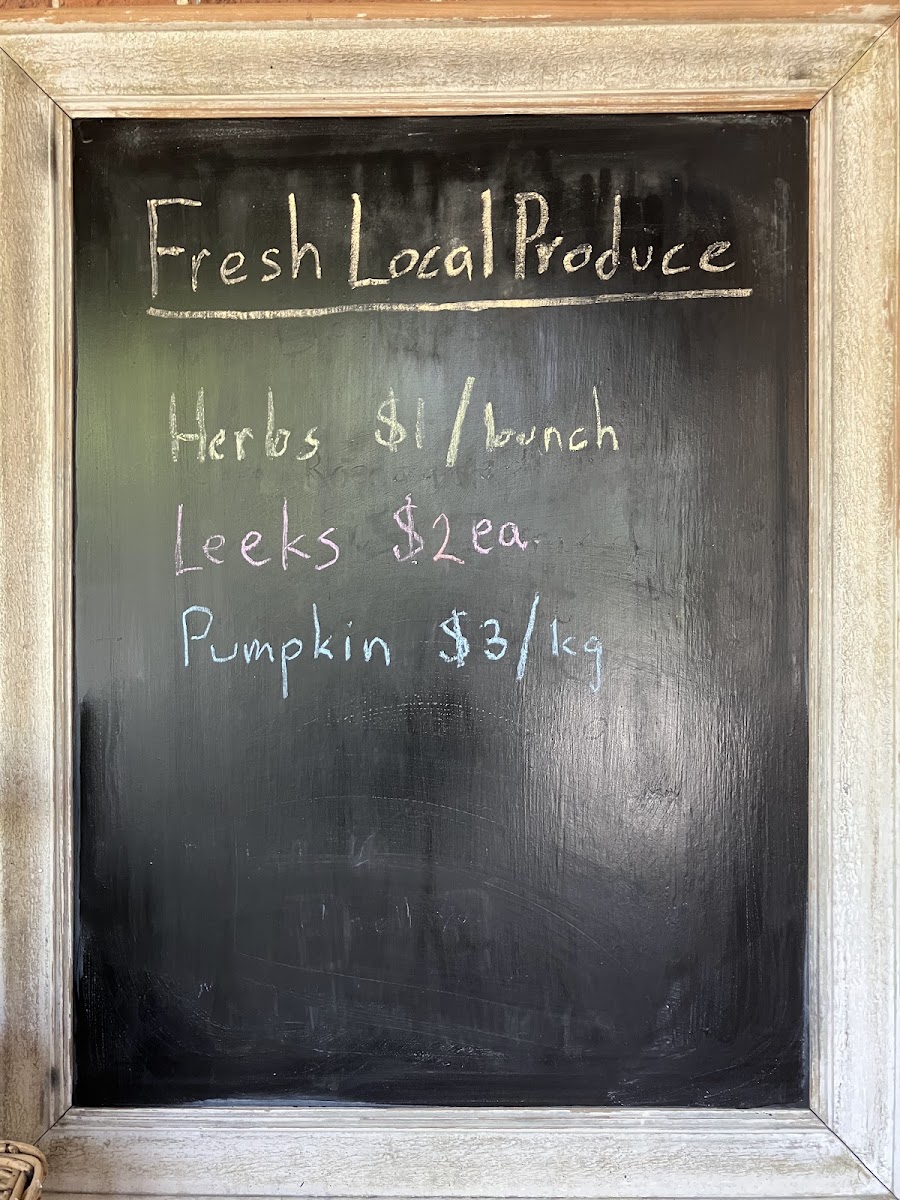 Fresh Local Produce
Herbs $1/bunch
Leeks $2ea
Pumpkin $3/kg